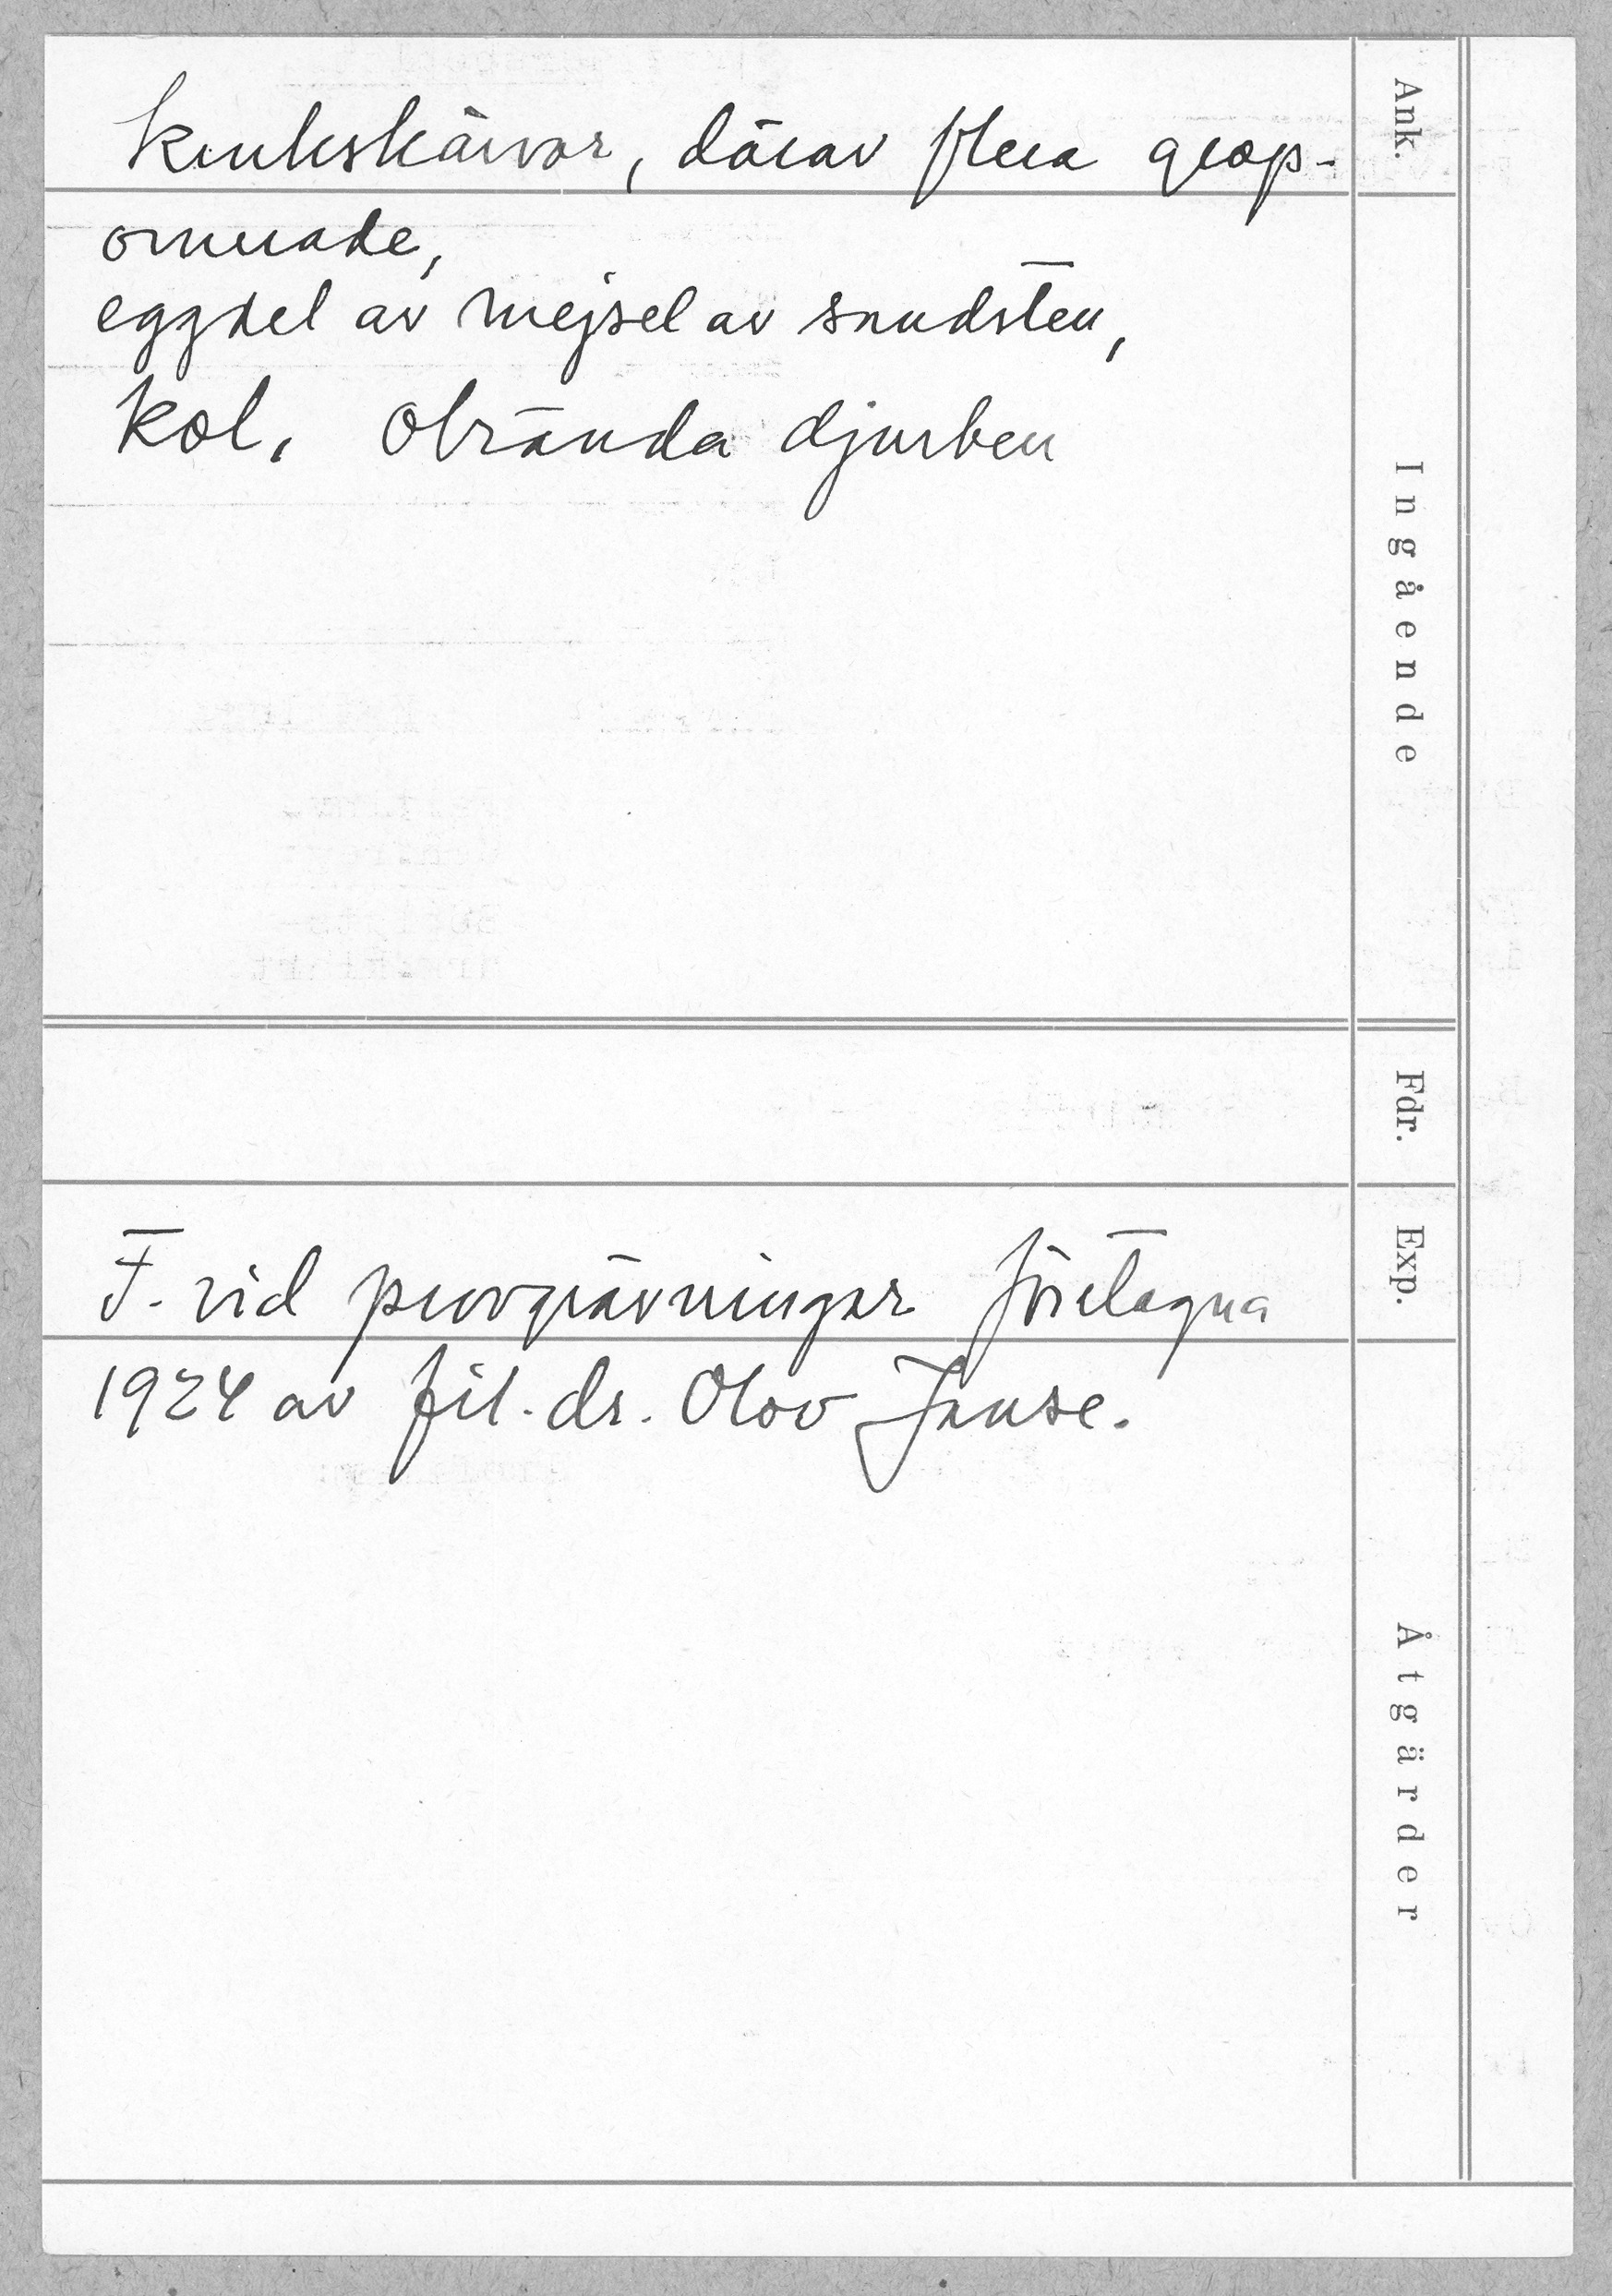 Krukskärvor, därav flera grop-
ornerade,
eggdel av mejsel av sandsten,
kol, obrända djurben
F. vid provgrävningar företagna
1924 av fil. dr. Olov Janse.
Ank.
Ingående
Fdr.
Exp.
Åtgärder